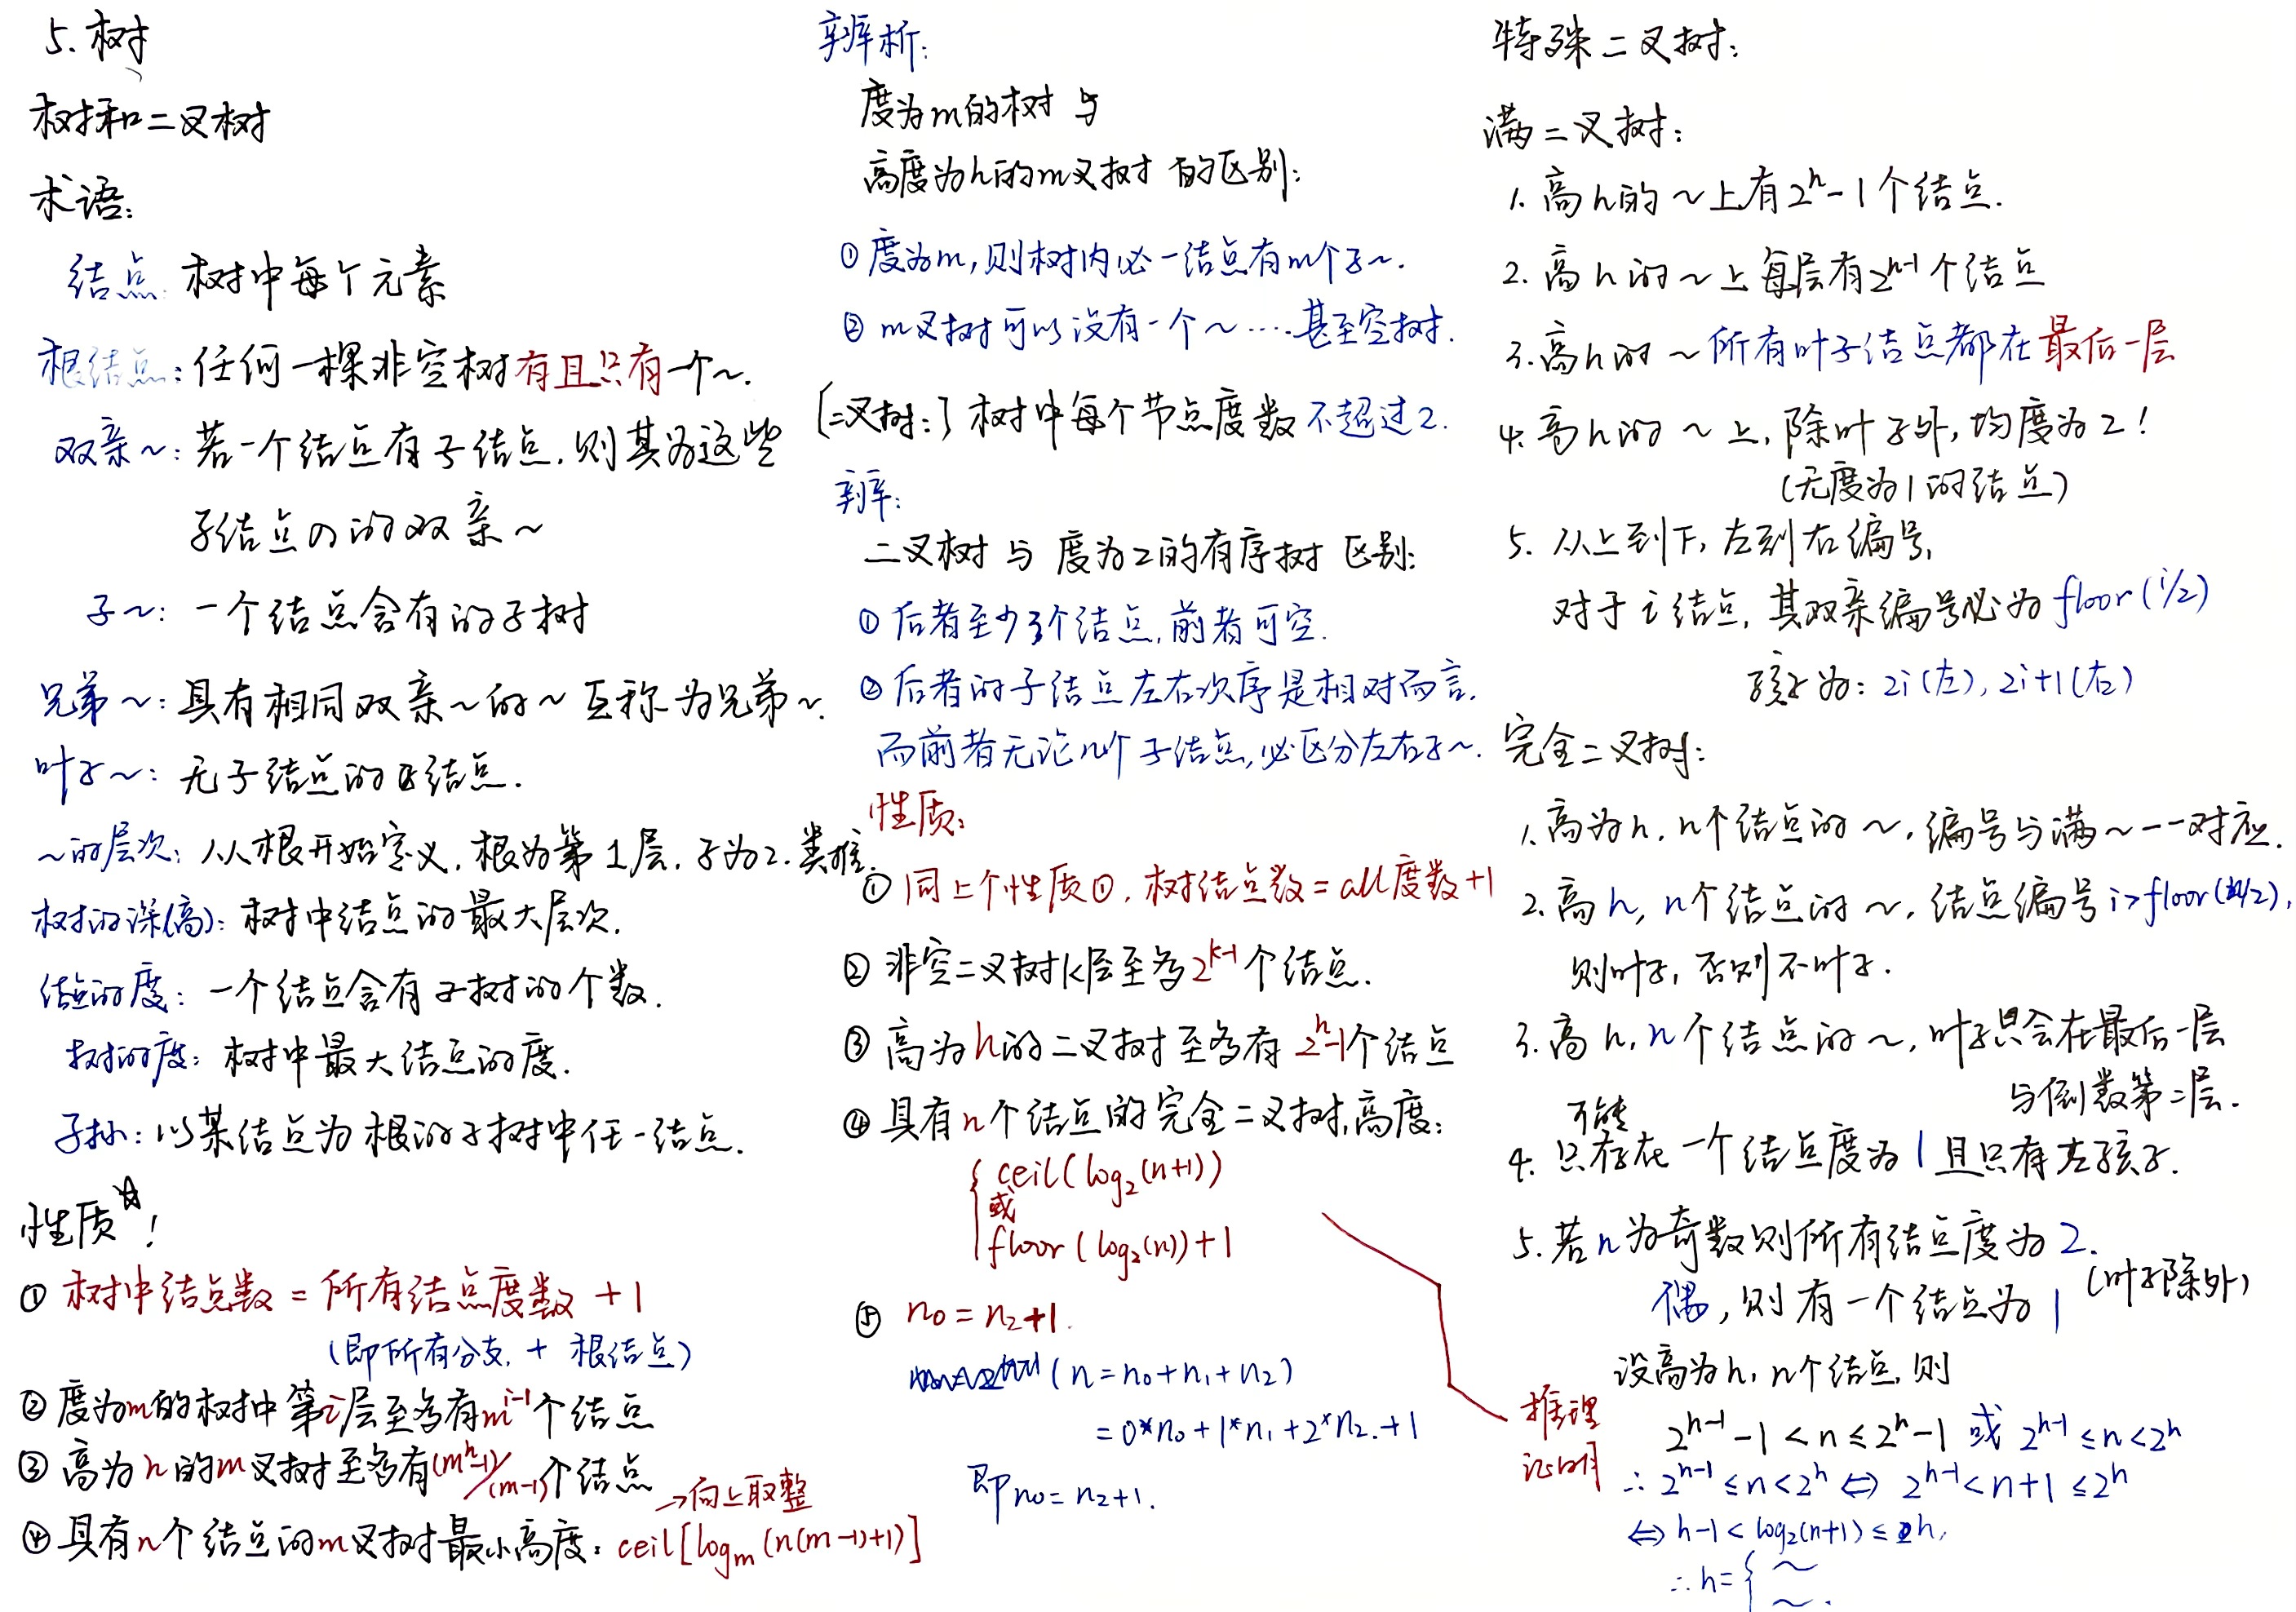 5. 树
树和二叉树
术语:
结点: 树中每个元素
根结点: 任何一棵非空树有且只有一个~.
双亲~: 若一个结点有子结点, 则其为这些
子结点的双亲~
子~: 一个结点含有的子树
兄弟~: 具有相同双亲~的~互称为兄弟~.
叶子~: 无子结点的结点.
~的层次: 从根开始定义, 根为第1层, 子为2. 类推.
树的深(高): 树中结点的最大层次.
结点的度: 一个结点含有子树的个数.
树的度: 树中最大结点的度.
子孙: 以某结点为根的子树中任一结点.
性质☆!
① 树中结点数 = 所有结点度数 + 1
(即所有分支, + 根结点)
② 度为m的树中第i层至多有m^(i-1)个结点
③ 高为h的m叉树至多有(m^h-1)/(m-1)个结点
→向上取整
④ 具有n个结点的m叉树最小高度: ceil[log_m(n(m-1)+1)]
辨析:
度为m的树与
高度为h的m叉树 的区别:
① 度为m, 则树内必一结点有m个子~.
② m叉树可以没有一个~····甚至空树.
[二叉树:] 树中每个节点度数不超过2.
辨:
二叉树 与 度为2的有序树 区别:
① 后者至少3个结点, 前者可空.
② 后者的子结点左右次序是相对而言.
而前者无论几个子结点, 必区分左右子~.
性质:
① 同上个性质①, 树结点数 = all度数+1
② 非空二叉树k层至多2^(k-1)个结点.
③ 高为h的二叉树至多有2^h-1个结点
④ 具有n个结点的完全二叉树, 高度:
{ ceil(log₂(n+1))
或
floor(log₂(n))+1
⑤ n₀ = n₂+1.
(n = n₀+n₁+n₂)
= 0*n₀ + 1*n₁ + 2*n₂ + 1
即 n₀ = n₂+1.
特殊二叉树:
满二叉树:
1. 高h的~上有2^h-1个结点.
2. 高h的~上每层有2^(h-1)个结点
3. 高h的~所有叶子结点都在最后一层
4. 高h的~上, 除叶子外, 均度为2!
(无度为1的结点)
5. 从上到下, 左到右编号,
对于i结点, 其双亲编号必为floor(i/2)
孩子为: 2i(左), 2i+1(右)
完全二叉树:
1. 高为h, n个结点的~, 编号与满~一一对应.
2. 高h, n个结点的~, 结点编号i>floor(n/2),
则叶子, 否则不叶子.
3. 高h, n个结点的~, 叶子只会在最后一层
与倒数第二层.
可能
4. 只存在一个结点度为1且只有左孩子.
5. 若n为奇数则所有结点度为2.
(叶子除外)
偶, 则有一个结点为1
推理
证明
设高为h, n个结点, 则
2^(h-1)-1 < n ≤ 2^h-1 或 2^(h-1) ≤ n < 2^h
∴ 2^(h-1) ≤ n < 2^h ⇔ 2^(h-1) < n+1 ≤ 2^h
⇔ h-1 < log₂(n+1) ≤ h,
∴ h = { ~
~.